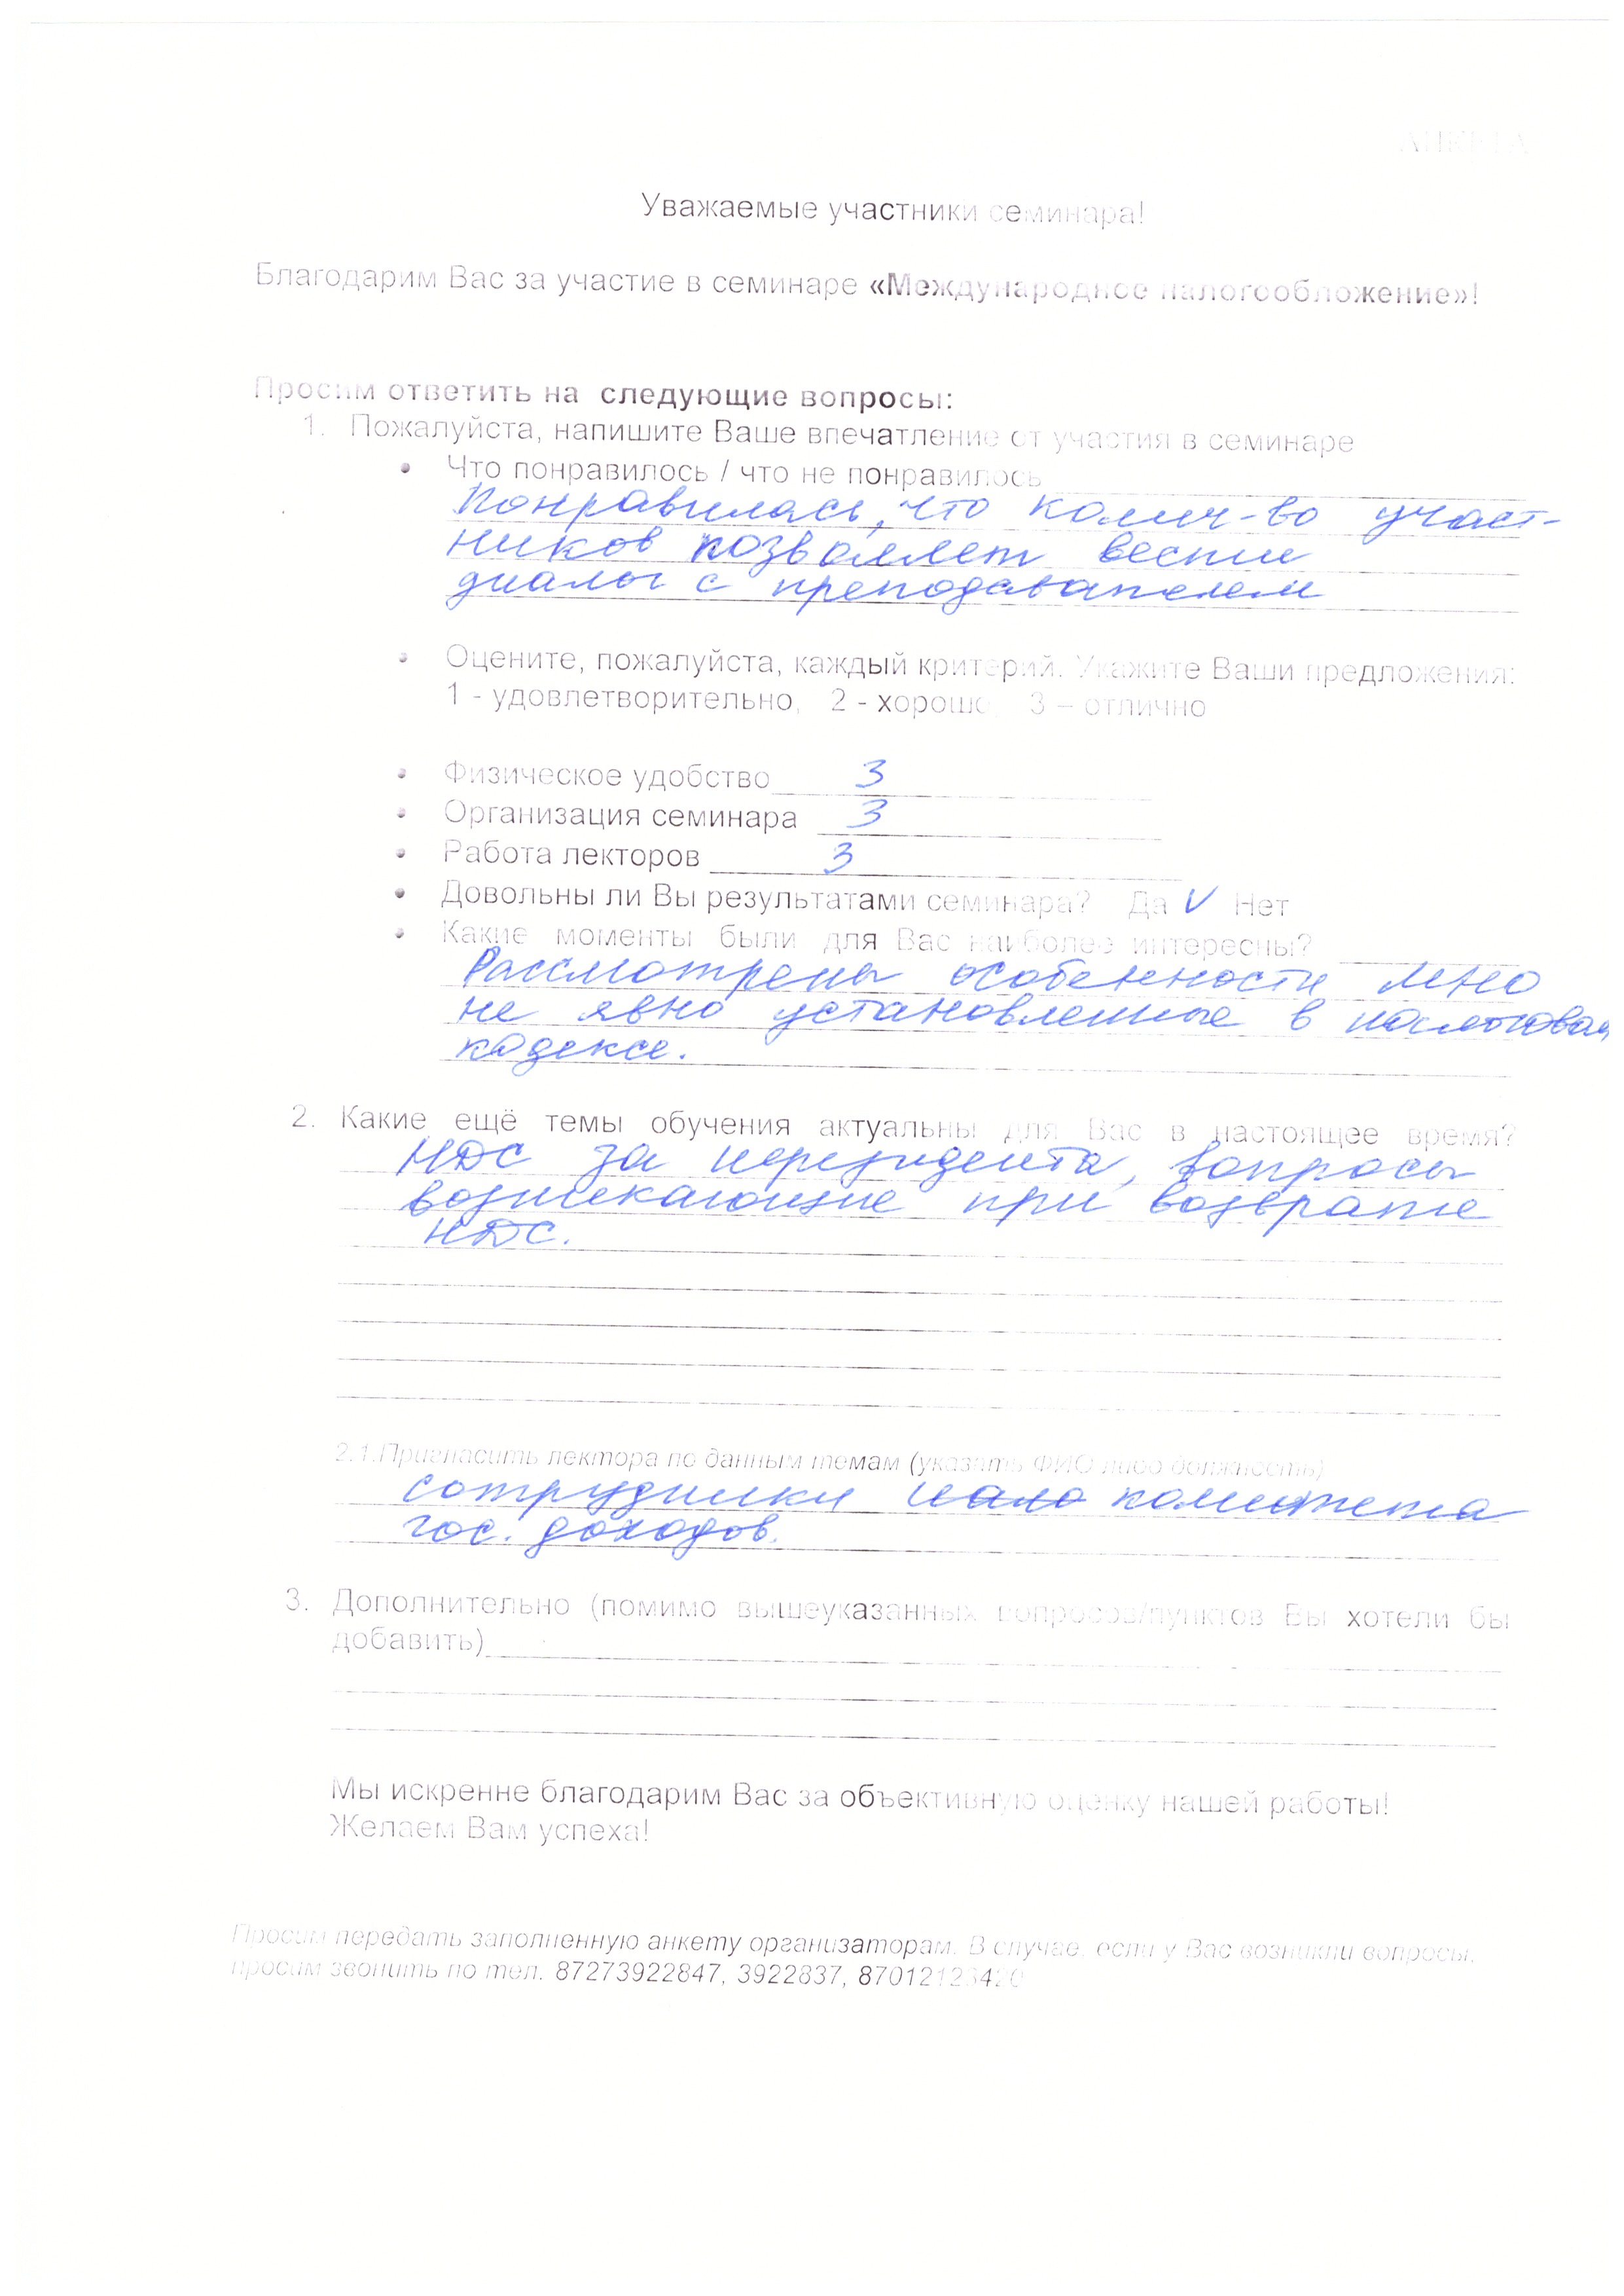 АНКЕТА
Уважаемые участники семинара!
Благодарим Вас за участие в семинаре «Международное налогообложение»!
Просим ответить на следующие вопросы:
1. Пожалуйста, напишите Ваше впечатление от участия в семинаре
• Что понравилось / что не понравилось
Понравилась, что колич-во участ-
ников позволяет вести
диалог с преподавателем
• Оцените, пожалуйста, каждый критерий. Укажите Ваши предложения:
1 - удовлетворительно, 2 - хорошо, 3 – отлично
• Физическое удобство 3
• Организация семинара 3
• Работа лекторов 3
• Довольны ли Вы результатами семинара? Да V Нет
• Какие моменты были для Вас наиболее интересны?
Рассмотрены особенности МНО
не явно установленные в
кодексе.
2. Какие ещё темы обучения актуальны для Вас в настоящее время?
НДС за нерезидента, вопросы
возникающие при возврате
НДС.
2.1.Пригласить лектора по данным темам (указать ФИО либо должность)
сотрудники комитета
гос. доходов.
3. Дополнительно (помимо вышеуказанных вопросов/пунктов Вы хотели бы
добавить)
Мы искренне благодарим Вас за объективную оценку нашей работы!
Желаем Вам успеха!
Просим передать заполненную анкету организаторам. В случае, если у Вас возникли вопросы,
просим звонить по тел. 87273922847, 3922837, 87012123420